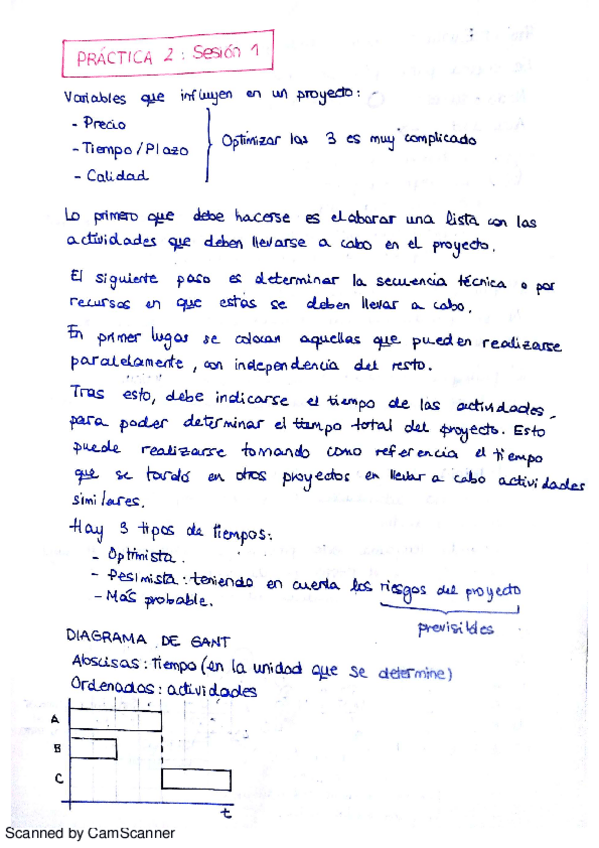 PRÁCTICA 2: Sesión 1
Variables que influyen en un proyecto:
- Precio
- Tiempo/Plazo
- Calidad
Optimizar las 3 es muy complicado
Lo primero que debe hacerse es elaborar una lista con las
actividades que deben llevarse a cabo en el proyecto.
El siguiente paso es determinar la secuencia técnica o por
recursos en que estas se deben llevar a cabo.
En primer lugar se colocan aquellas que pueden realizarse
paralelamente, con independencia del resto.
Tras esto, debe indicarse el tiempo de las actividades,
para poder determinar el tiempo total del proyecto. Esto
puede realizarse tomando como referencia el tiempo
que se tardó en otros proyectos en llevar a cabo actividades
similares.
Hay 3 tipos de tiempos:
- Optimista.
- Pesimista: teniendo en cuenta los riesgos del proyecto
previsibles
- Más probable.
DIAGRAMA DE GANT
Abscisas: tiempo (en la unidad que se determine)
Ordenadas: actividades
A
B
C
t
Scanned by CamScanner